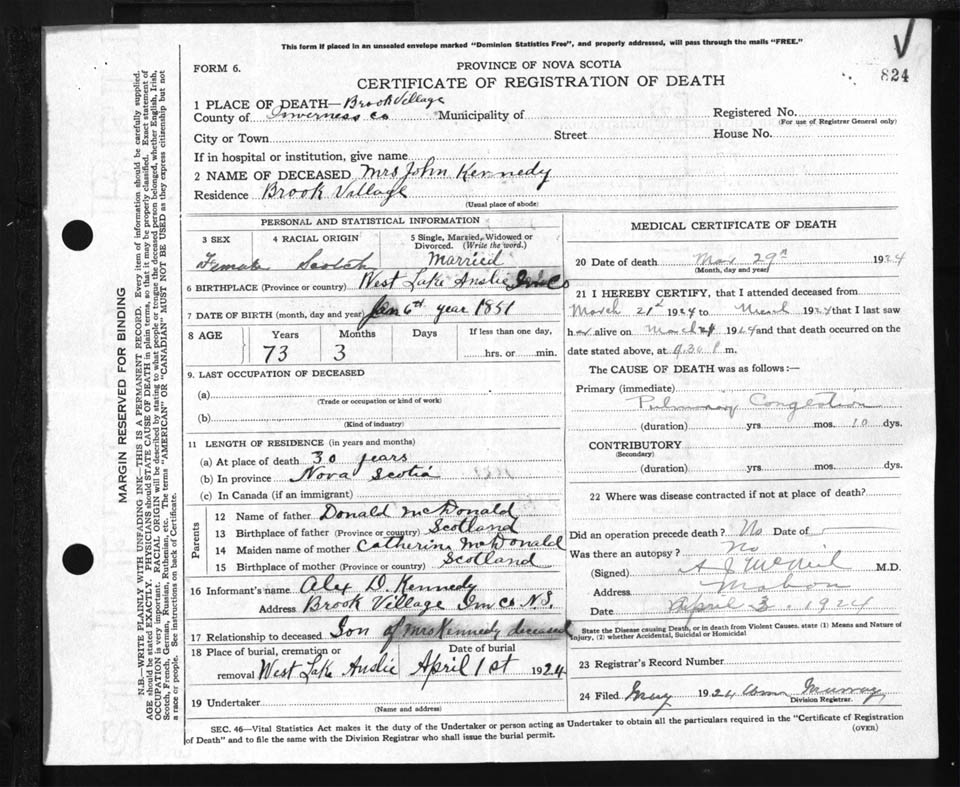 This form if placed in an unsealed envelope marked "Dominion Statistics Free", and properly addressed, will pass through the mails "FREE."
FORM 6.
PROVINCE OF NOVA SCOTIA
824
CERTIFICATE OF REGISTRATION OF DEATH
1 PLACE OF DEATH—Brook Village
County of Inverness Co Municipality of
Registered No.
(For use of Registrar General only)
City or Town Street House No.
If in hospital or institution, give name
2 NAME OF DECEASED Mrs John Kennedy
Residence Brook Village
(Usual place of abode)
PERSONAL AND STATISTICAL INFORMATION
3 SEX 4 RACIAL ORIGIN 5 Single, Married, Widowed or Divorced. (Write the word.)
Female Scotch Married
6 BIRTHPLACE (Province or country) West Lake Anslie Inv Co
7 DATE OF BIRTH (month, day and year) Jan 6th year 1851
8 AGE Years Months Days If less than one day,
73 3 hrs. or min.
9. LAST OCCUPATION OF DECEASED
(a)
(Trade or occupation or kind of work)
(b)
(Kind of industry)
11 LENGTH OF RESIDENCE (in years and months)
(a) At place of death 30 years
(b) In province Nova Scotia
(c) In Canada (if an immigrant)
Parents
12 Name of father Donald McDonald
13 Birthplace of father (Province or country) Scotland
14 Maiden name of mother Catherine McDonald
15 Birthplace of mother (Province or country) Scotland
16 Informant's name Alex D. Kennedy
Address Brook Village Inv Co N.S.
17 Relationship to deceased Son of Mrs Kennedy deceased
18 Place of burial, cremation or removal Date of burial
West Lake Anslie April 1st 1924
19 Undertaker
(Name and address)
MEDICAL CERTIFICATE OF DEATH
20 Date of death Mar 29th 1924
(Month, day and year)
21 I HEREBY CERTIFY, that I attended deceased from
March 21st 1924 to March 1924 that I last saw
her alive on March 1924 and that death occurred on the
date stated above, at 9.30 P m.
The CAUSE OF DEATH was as follows:—
Primary (immediate)
Pulmonary Congestion
(duration) yrs. mos. 10 dys.
CONTRIBUTORY
(Secondary)
(duration) yrs. mos. dys.
22 Where was disease contracted if not at place of death?
Did an operation precede death? No Date of
Was there an autopsy? No
(Signed) A J McNeil M.D.
Address Mabou
Date April 3. 1924
State the Disease causing Death, or in death from Violent Causes, state (1) Means and Nature of
Injury, (2) whether Accidental, Suicidal or Homicidal
23 Registrar's Record Number
24 Filed 1924 Murray
Division Registrar.
SEC. 46—Vital Statistics Act makes it the duty of the Undertaker or person acting as Undertaker to obtain all the particulars required in the "Certificate of Registration
of Death" and to file the same with the Division Registrar who shall issue the burial permit.
(OVER)
MARGIN RESERVED FOR BINDING
N.B.—WRITE PLAINLY WITH UNFADING INK—THIS IS A PERMANENT RECORD. Every item of information should be carefully supplied.
AGE should be stated EXACTLY. PHYSICIANS should STATE CAUSE OF DEATH in plain terms, so that it may be properly classified. Exact statement of
OCCUPATION is very important. RACIAL ORIGIN will be described by stating to what people or tongue the deceased person belonged, whether English, Irish,
Scotch, French, German, Russian, Ruthenian, etc. The terms "AMERICAN" OR "CANADIAN" MUST NOT BE USED as they express citizenship but not
a race or people. See instructions on back of Certificate.